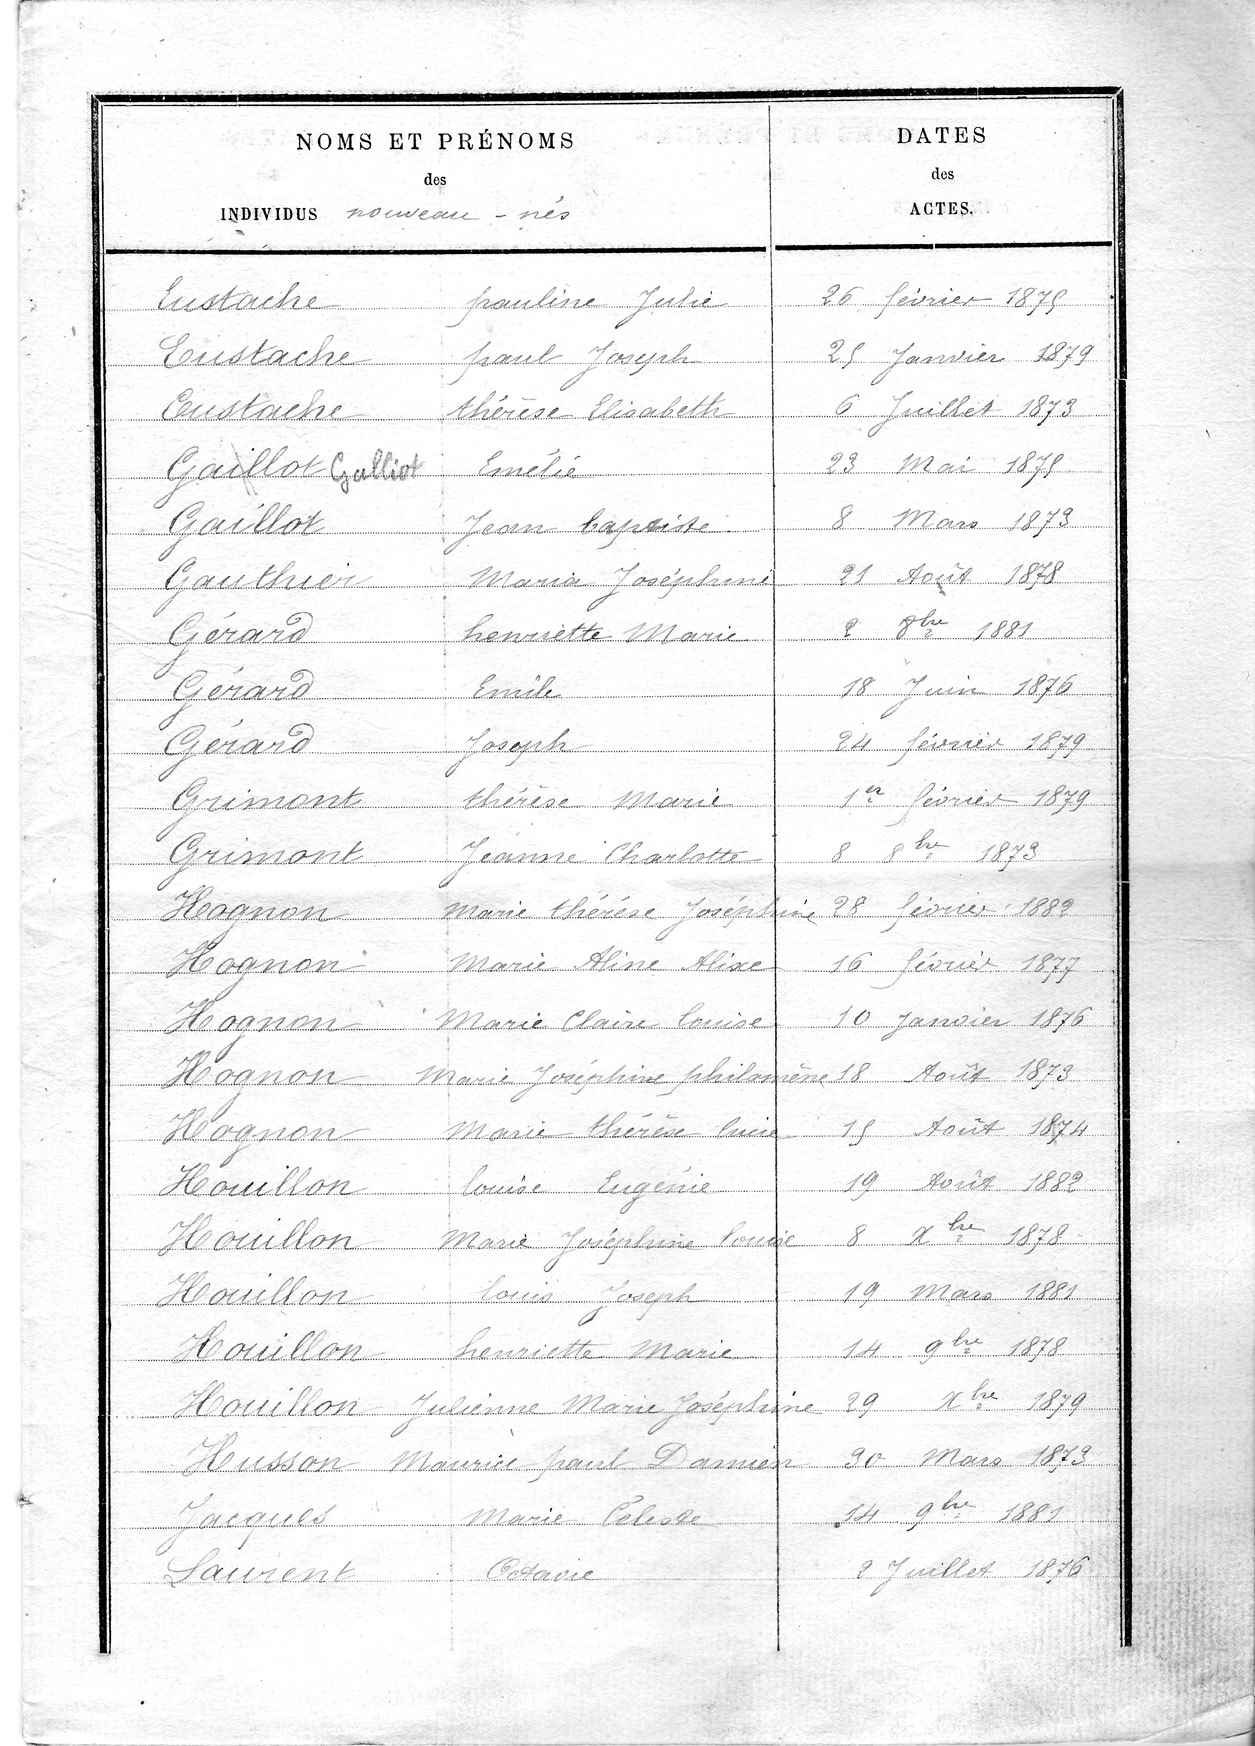 NOMS ET PRÉNOMS
des
INDIVIDUS nouveau-nés
DATES
des
ACTES.
Eustache pauline Julie 26 février 1875
Eustache paul Joseph 25 Janvier 1879
Eustache thérèse Elisabeth 6 Juillet 1873
Gaillot Galliot Emélie 23 Mai 1875
Gaillot Jean baptiste 8 Mars 1873
Gauthier Maria Joséphine 21 Août 1878
Gérard henriette Marie 2 8bre 1881
Gérard Emile 18 Juin 1876
Gérard Joseph 24 février 1879
Grimont thérèse Marie 1er février 1879
Grimont Jeanne Charlotte 8 8bre 1873
Hognon Marie thérése Joséphine 28 février 1882
Hognon Marie Aline Alixe 16 février 1877
Hognon Marie Claire louise 10 Janvier 1876
Hognon Marie Joséphine philomène 18 Août 1873
Hognon Marie thérèse lucie 15 Août 1874
Houillon louise Eugénie 19 Août 1882
Houillon Marie Joséphine louise 8 Xbre 1878
Houillon louis Joseph 19 Mars 1881
Houillon henriette Marie 14 9bre 1878
Houillon Julienne Marie Joséphine 29 Xbre 1879
Husson Maurice paul Damien 30 Mars 1873
Jacques Marie Céleste 14 9bre 1881
Laurent Octavie 2 Juillet 1876